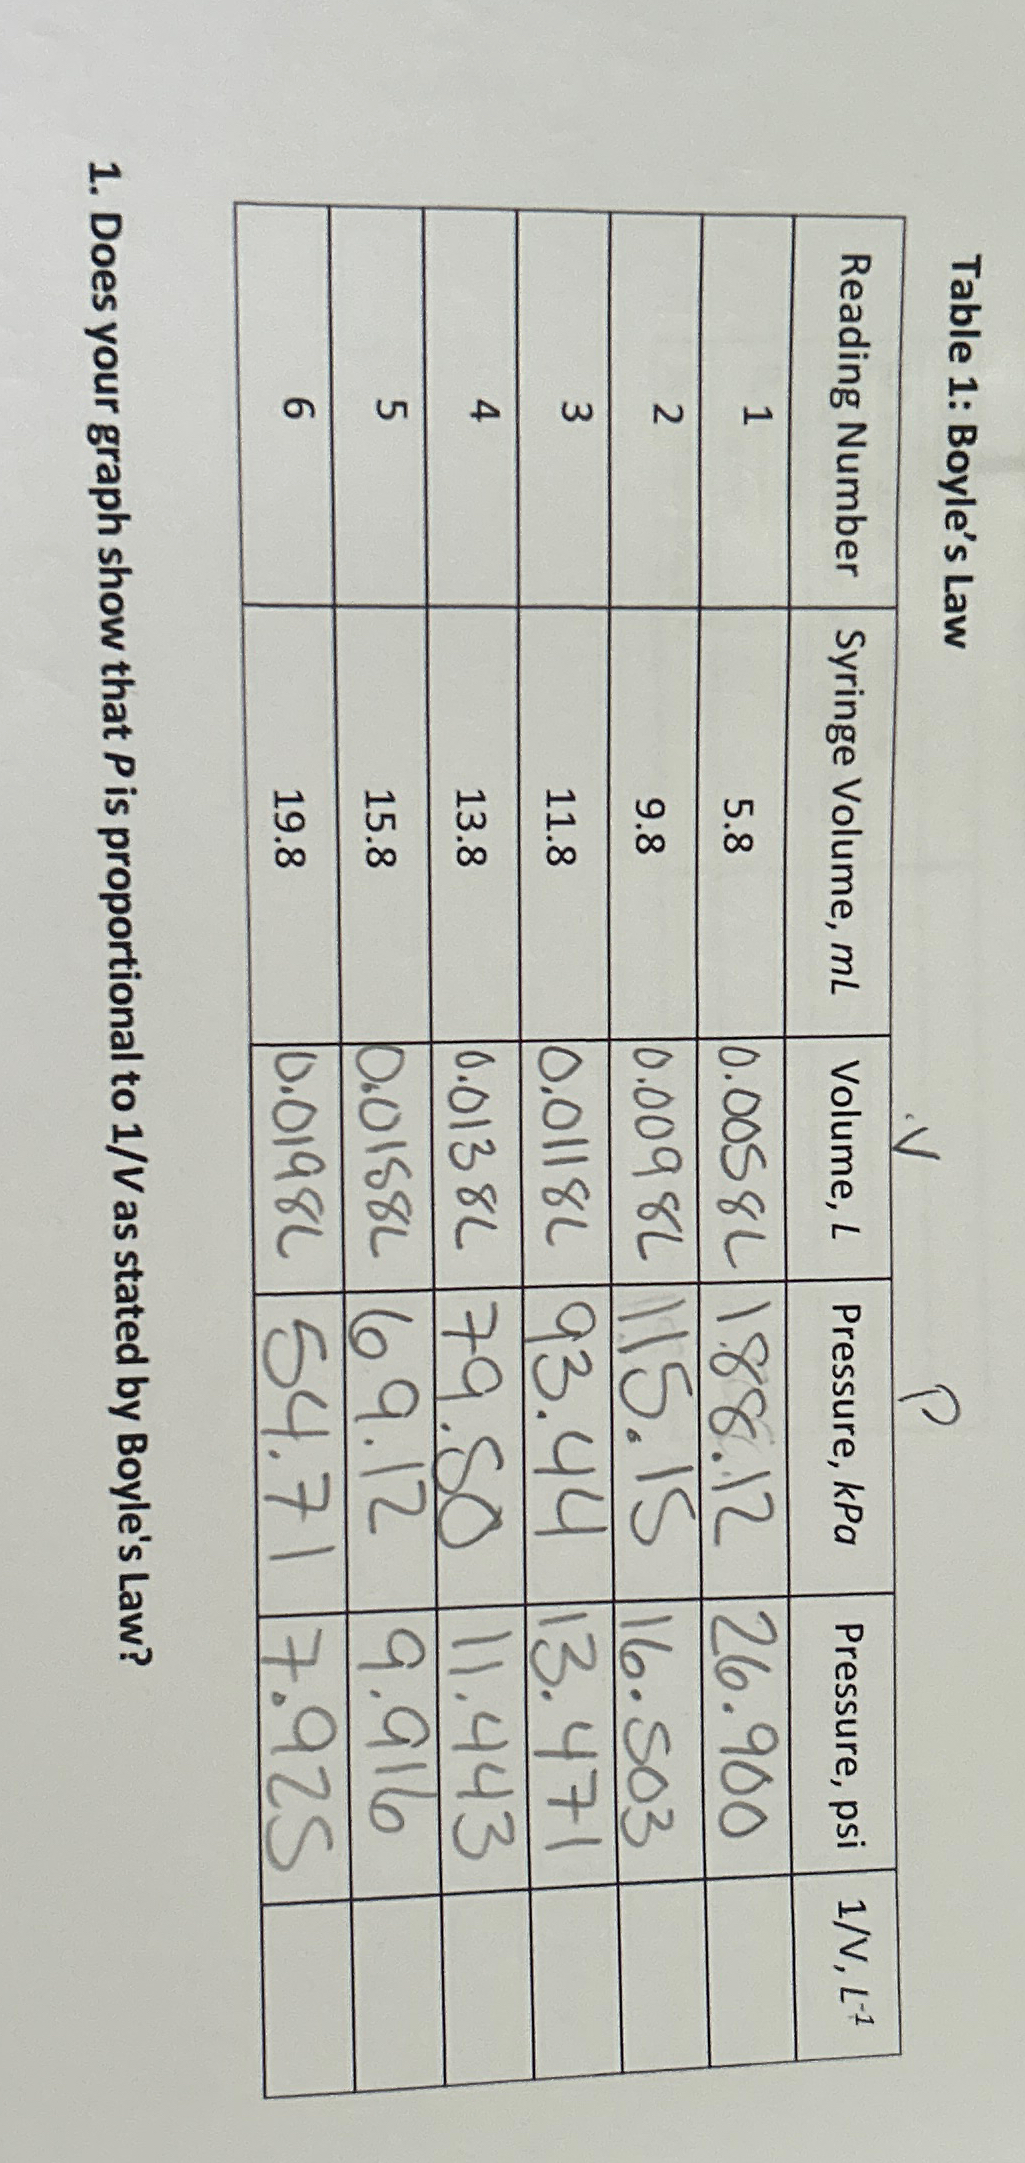 Table 1: Boyle's Law
V P
Reading Number Syringe Volume, mL Volume, L Pressure, kPa Pressure, psi 1/V, L⁻¹
1 5.8 0.0058L 188.12 26.900
2 9.8 0.0098L 115.15 16.503
3 11.8 0.0118L 93.44 13.471
4 13.8 0.0138L 79.50 11.443
5 15.8 0.0158L 69.12 9.916
6 19.8 0.0198L 54.71 7.925
1. Does your graph show that P is proportional to 1/V as stated by Boyle's Law?